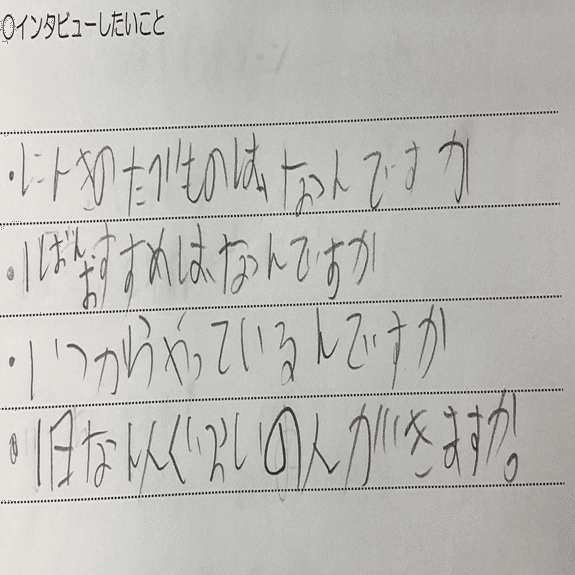 ○インタビューしたいこと
・にんきのたべものは、なんですか
・1ばんおすすめは、なんですか
・いつからやっているんですか
・1日なん人ぐらいの人がきますか。